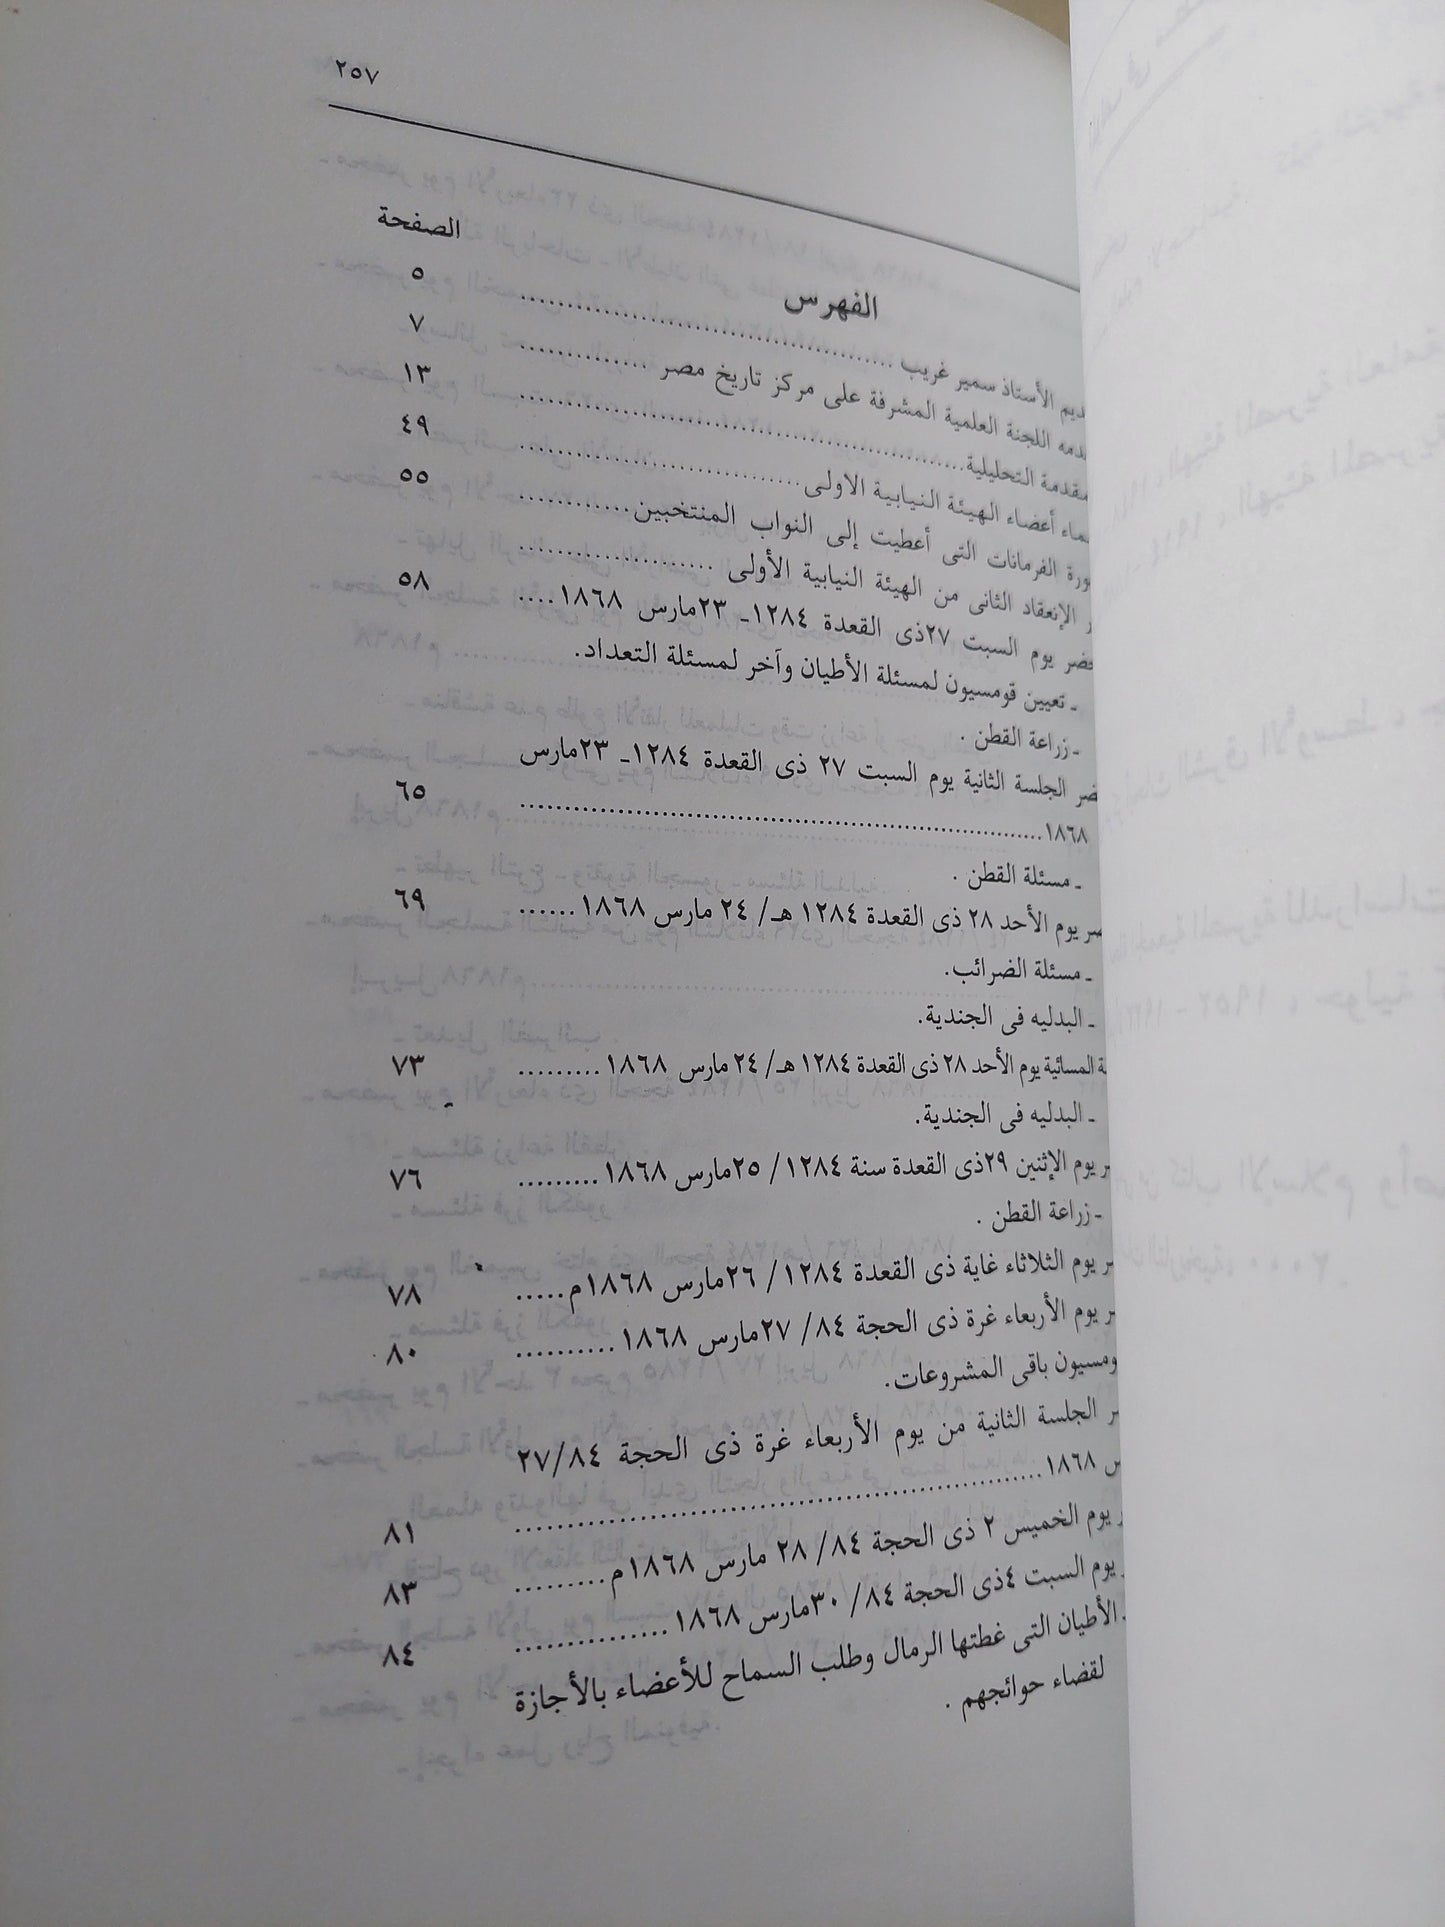 ٢٥٧
الفهرس
الصفحة
الأستاذ سمير غريب ........ ٥
اللجنة العلمية المشرفة على مركز تاريخ مصر ........ ٧
التحليلية ........ ١٣
أعضاء الهيئة النيابية الاولى ........ ٤٩
الفرمانات التى أعطيت إلى النواب المنتخبين ........ ٥٥
الإنعقاد الثانى من الهيئة النيابية الأولى ........
يوم السبت ٢٧ذى القعدة ١٢٨٤ـ ٢٣مارس ١٨٦٨ .... ٥٨
ـ تعيين قومسيون لمسئلة الأطيان وآخر لمسئلة التعداد.
ـ زراعة القطن .
الجلسة الثانية يوم السبت ٢٧ ذى القعدة ١٢٨٤ـ ٢٣مارس
١٨٦٨ ........ ٦٥
ـ مسئلة القطن .
يوم الأحد ٢٨ ذى القعدة ١٢٨٤ هـ/ ٢٤ مارس ١٨٦٨ ...... ٦٩
ـ مسئلة الضرائب.
ـ البدليه فى الجندية.
المسائية يوم الأحد ٢٨ ذى القعدة ١٢٨٤ هـ/ ٢٤ مارس ١٨٦٨ ......... ٧٣
ـ البدليه فى الجندية.
يوم الإثنين ٢٩ذى القعدة سنة ١٢٨٤/ ٢٥مارس ١٨٦٨ ......... ٧٦
ـ زراعة القطن .
يوم الثلاثاء غاية ذى القعدة ١٢٨٤/ ٢٦مارس ١٨٦٨م ..... ٧٨
يوم الأربعاء غرة ذى الحجة ٨٤/ ٢٧مارس ١٨٦٨ .......... ٨٠
باقى المشروعات.
الجلسة الثانية من يوم الأربعاء غرة ذى الحجة ٢٧/٨٤
١٨٦٨ ........ ٨١
يوم الخميس ٢ ذى الحجة ٨٤/ ٢٨ مارس ١٨٦٨م ......... ٨٣
يوم السبت ٤ذى الحجة ٨٤/ ٣٠مارس ١٨٦٨ ............... ٨٤
الأطيان التى غطتها الرمال وطلب السماح للأعضاء بالأجازة
لقضاء حوائجهم .